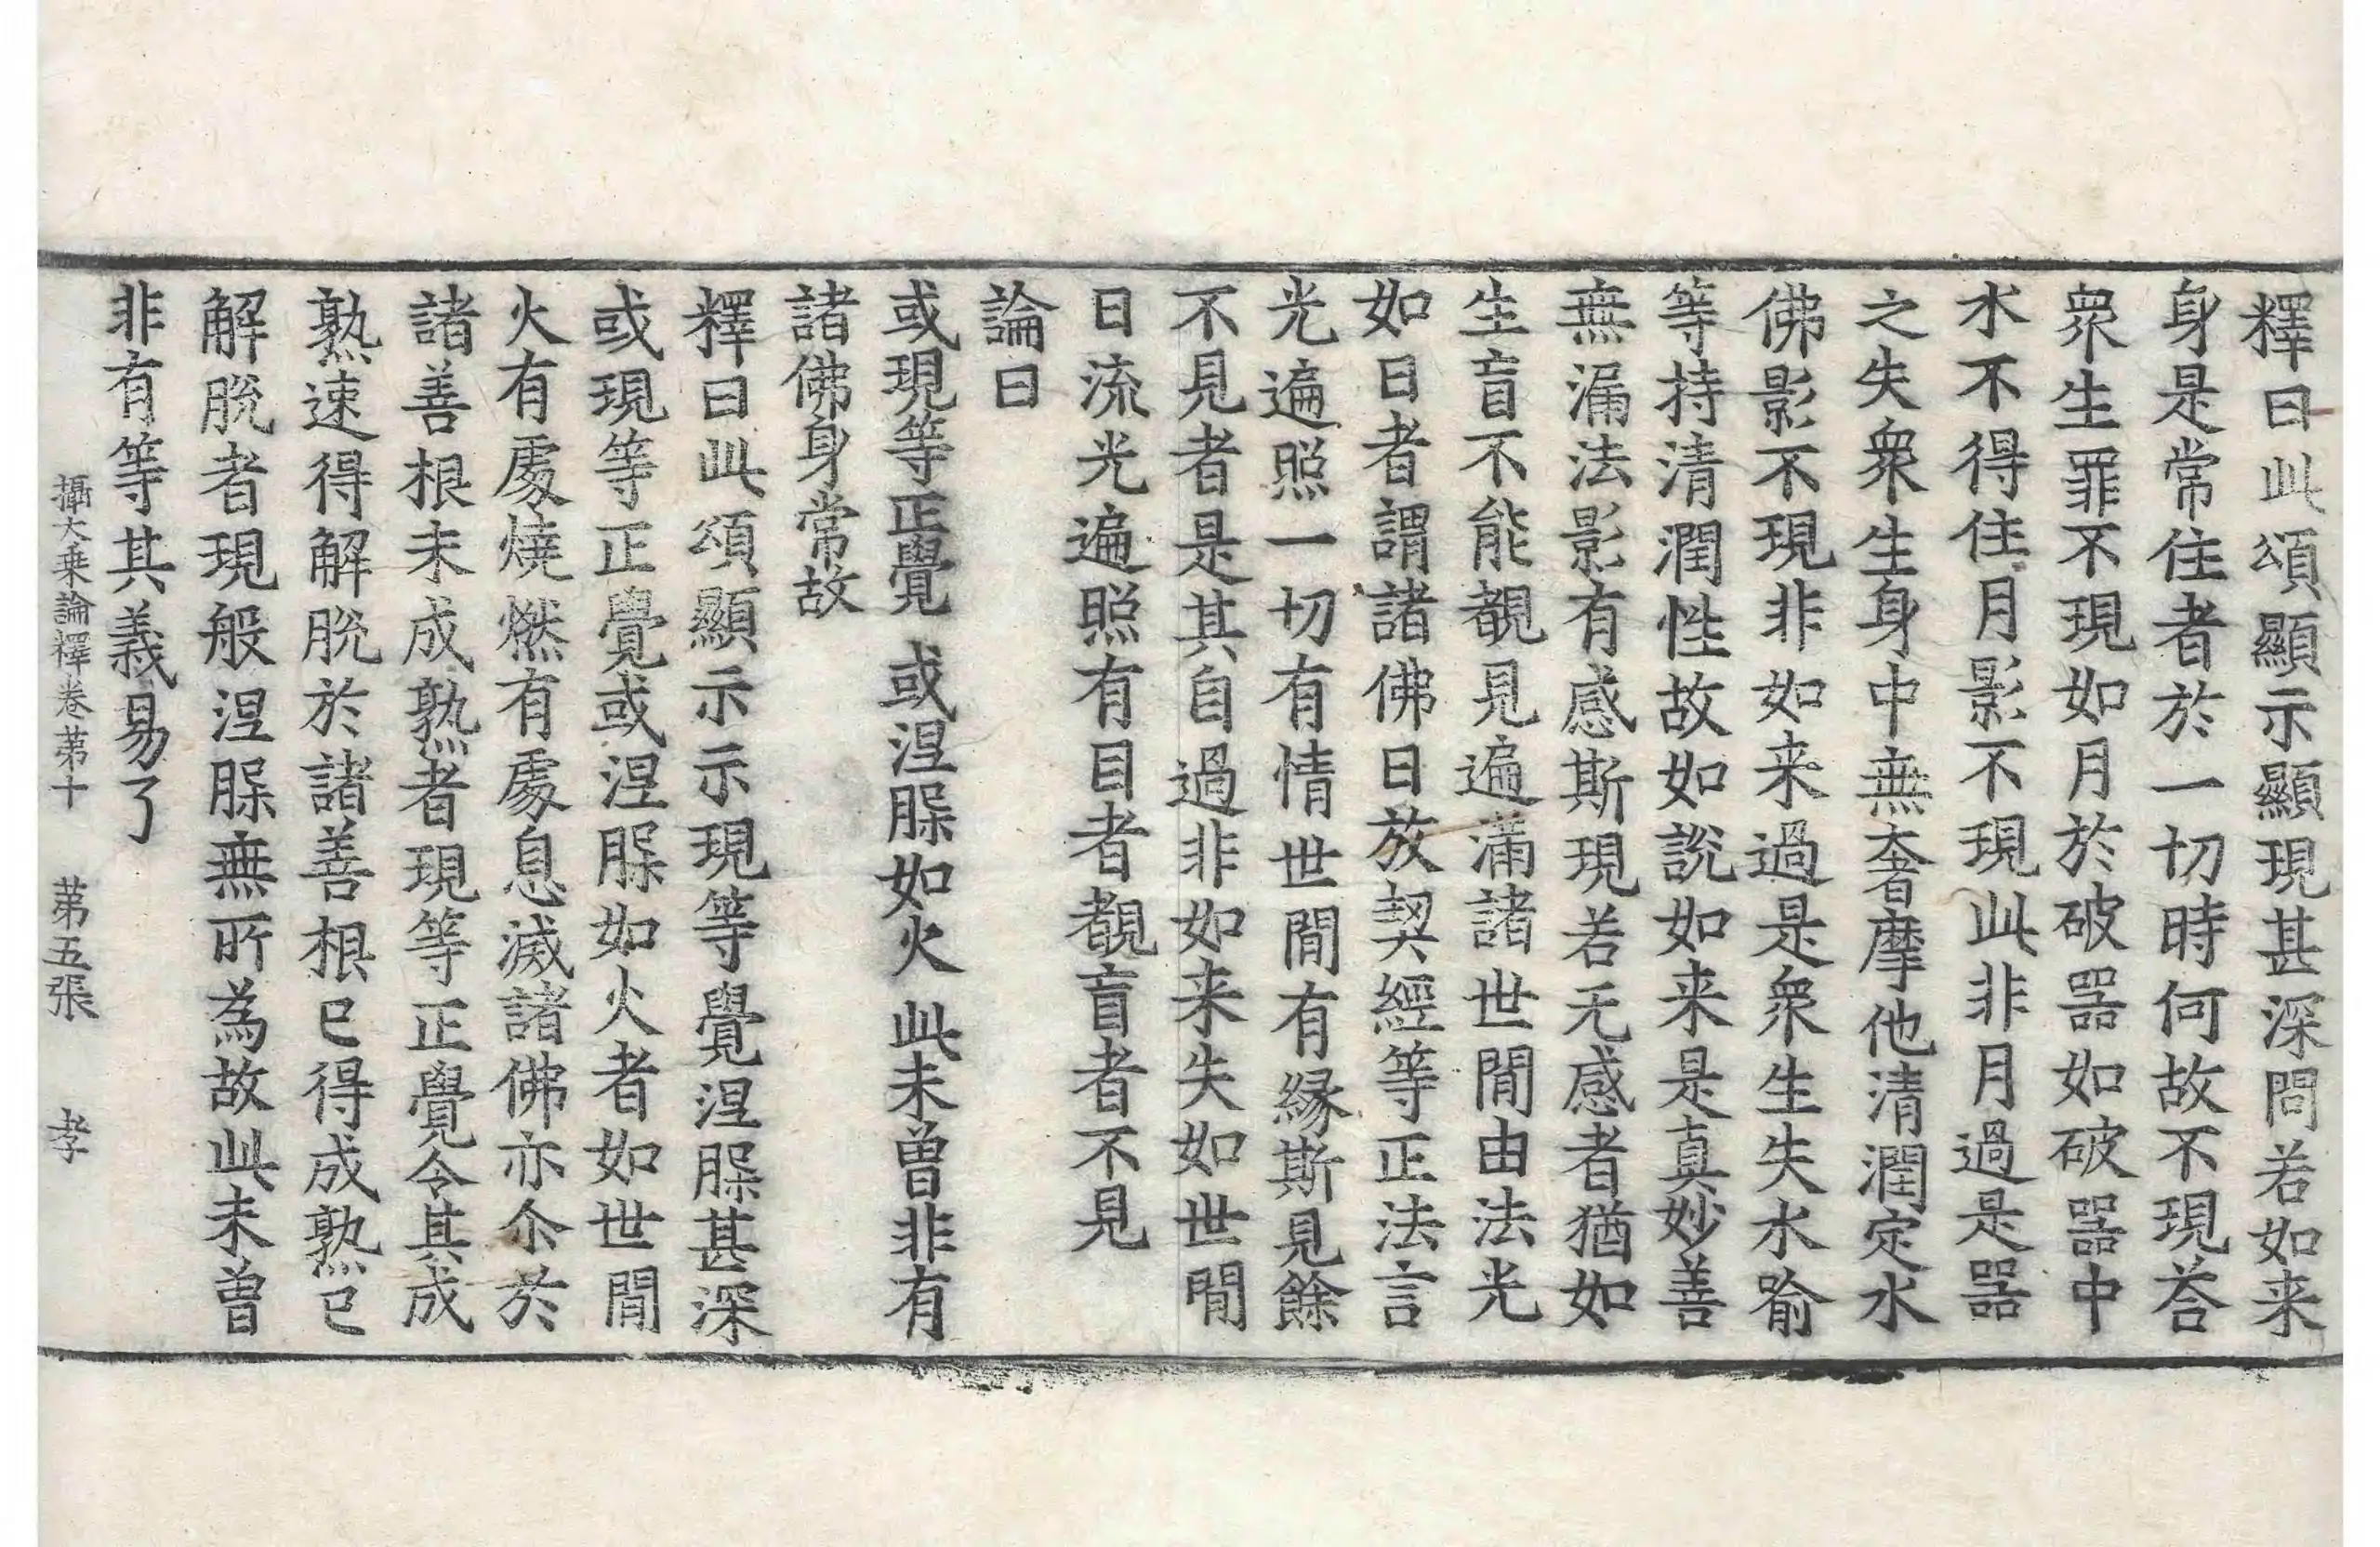 釋曰此頌顯示顯現甚深問若如来
身是常住者於一切時何故不現荅
衆生罪不現如月於破器如破器中
水不得住月影不現此非月過是器
之失衆生身中無奢摩他清潤定水
佛影不現非如来過是衆生失水喻
等持清潤性故如說如来是真妙善
無漏法影有感斯現若无感者猶如
生盲不能覩見遍滿諸世間由法光
如日者謂諸佛日放契經等正法言
光遍照一切有情世間有縁斯見餘
不見者是其自過非如来失如世間
日流光遍照有目者覩盲者不見
論曰
或現等正覺 或涅槃如火 此未曽非有
諸佛身常故
釋曰此頌顯示示現等覺涅槃甚深
或現等正覺或涅槃如火者如世間
火有處燒燃有處息滅諸佛亦尒於
諸善根未成熟者現等正覺令其成
熟速得解脫於諸善根已得成熟已
解脫者現般涅槃無所為故此未曽
非有等其義易了
攝大乗論釋卷第十 第五張 孝